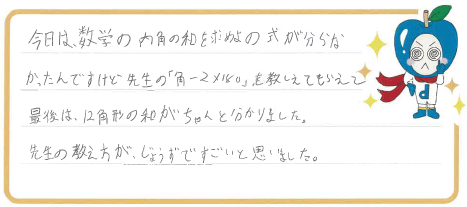 今日は、数学の内角の和を求めるの式が分らな
かったんですけど先生の「角-2×180」を教しえてもらえて
最後は、12角形の和がちゃんと分かりました。
先生の教え方が、じょうずですごいと思いました。